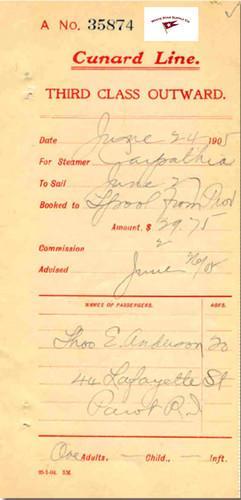 A No. 35874
Cunard Line.
THIRD CLASS OUTWARD.
Date June 24 1905
For Steamer Carpathia
To Sail June 27
Booked to Lpool from Prov
Amount, $ 29.75
Commission 2
Advised June 26/05
NAMES OF PASSENGERS. AGES.
Thos E. Anderson 20
44 Lafayette St
Pawt R.I.
One Adults, - Child., - Inft.